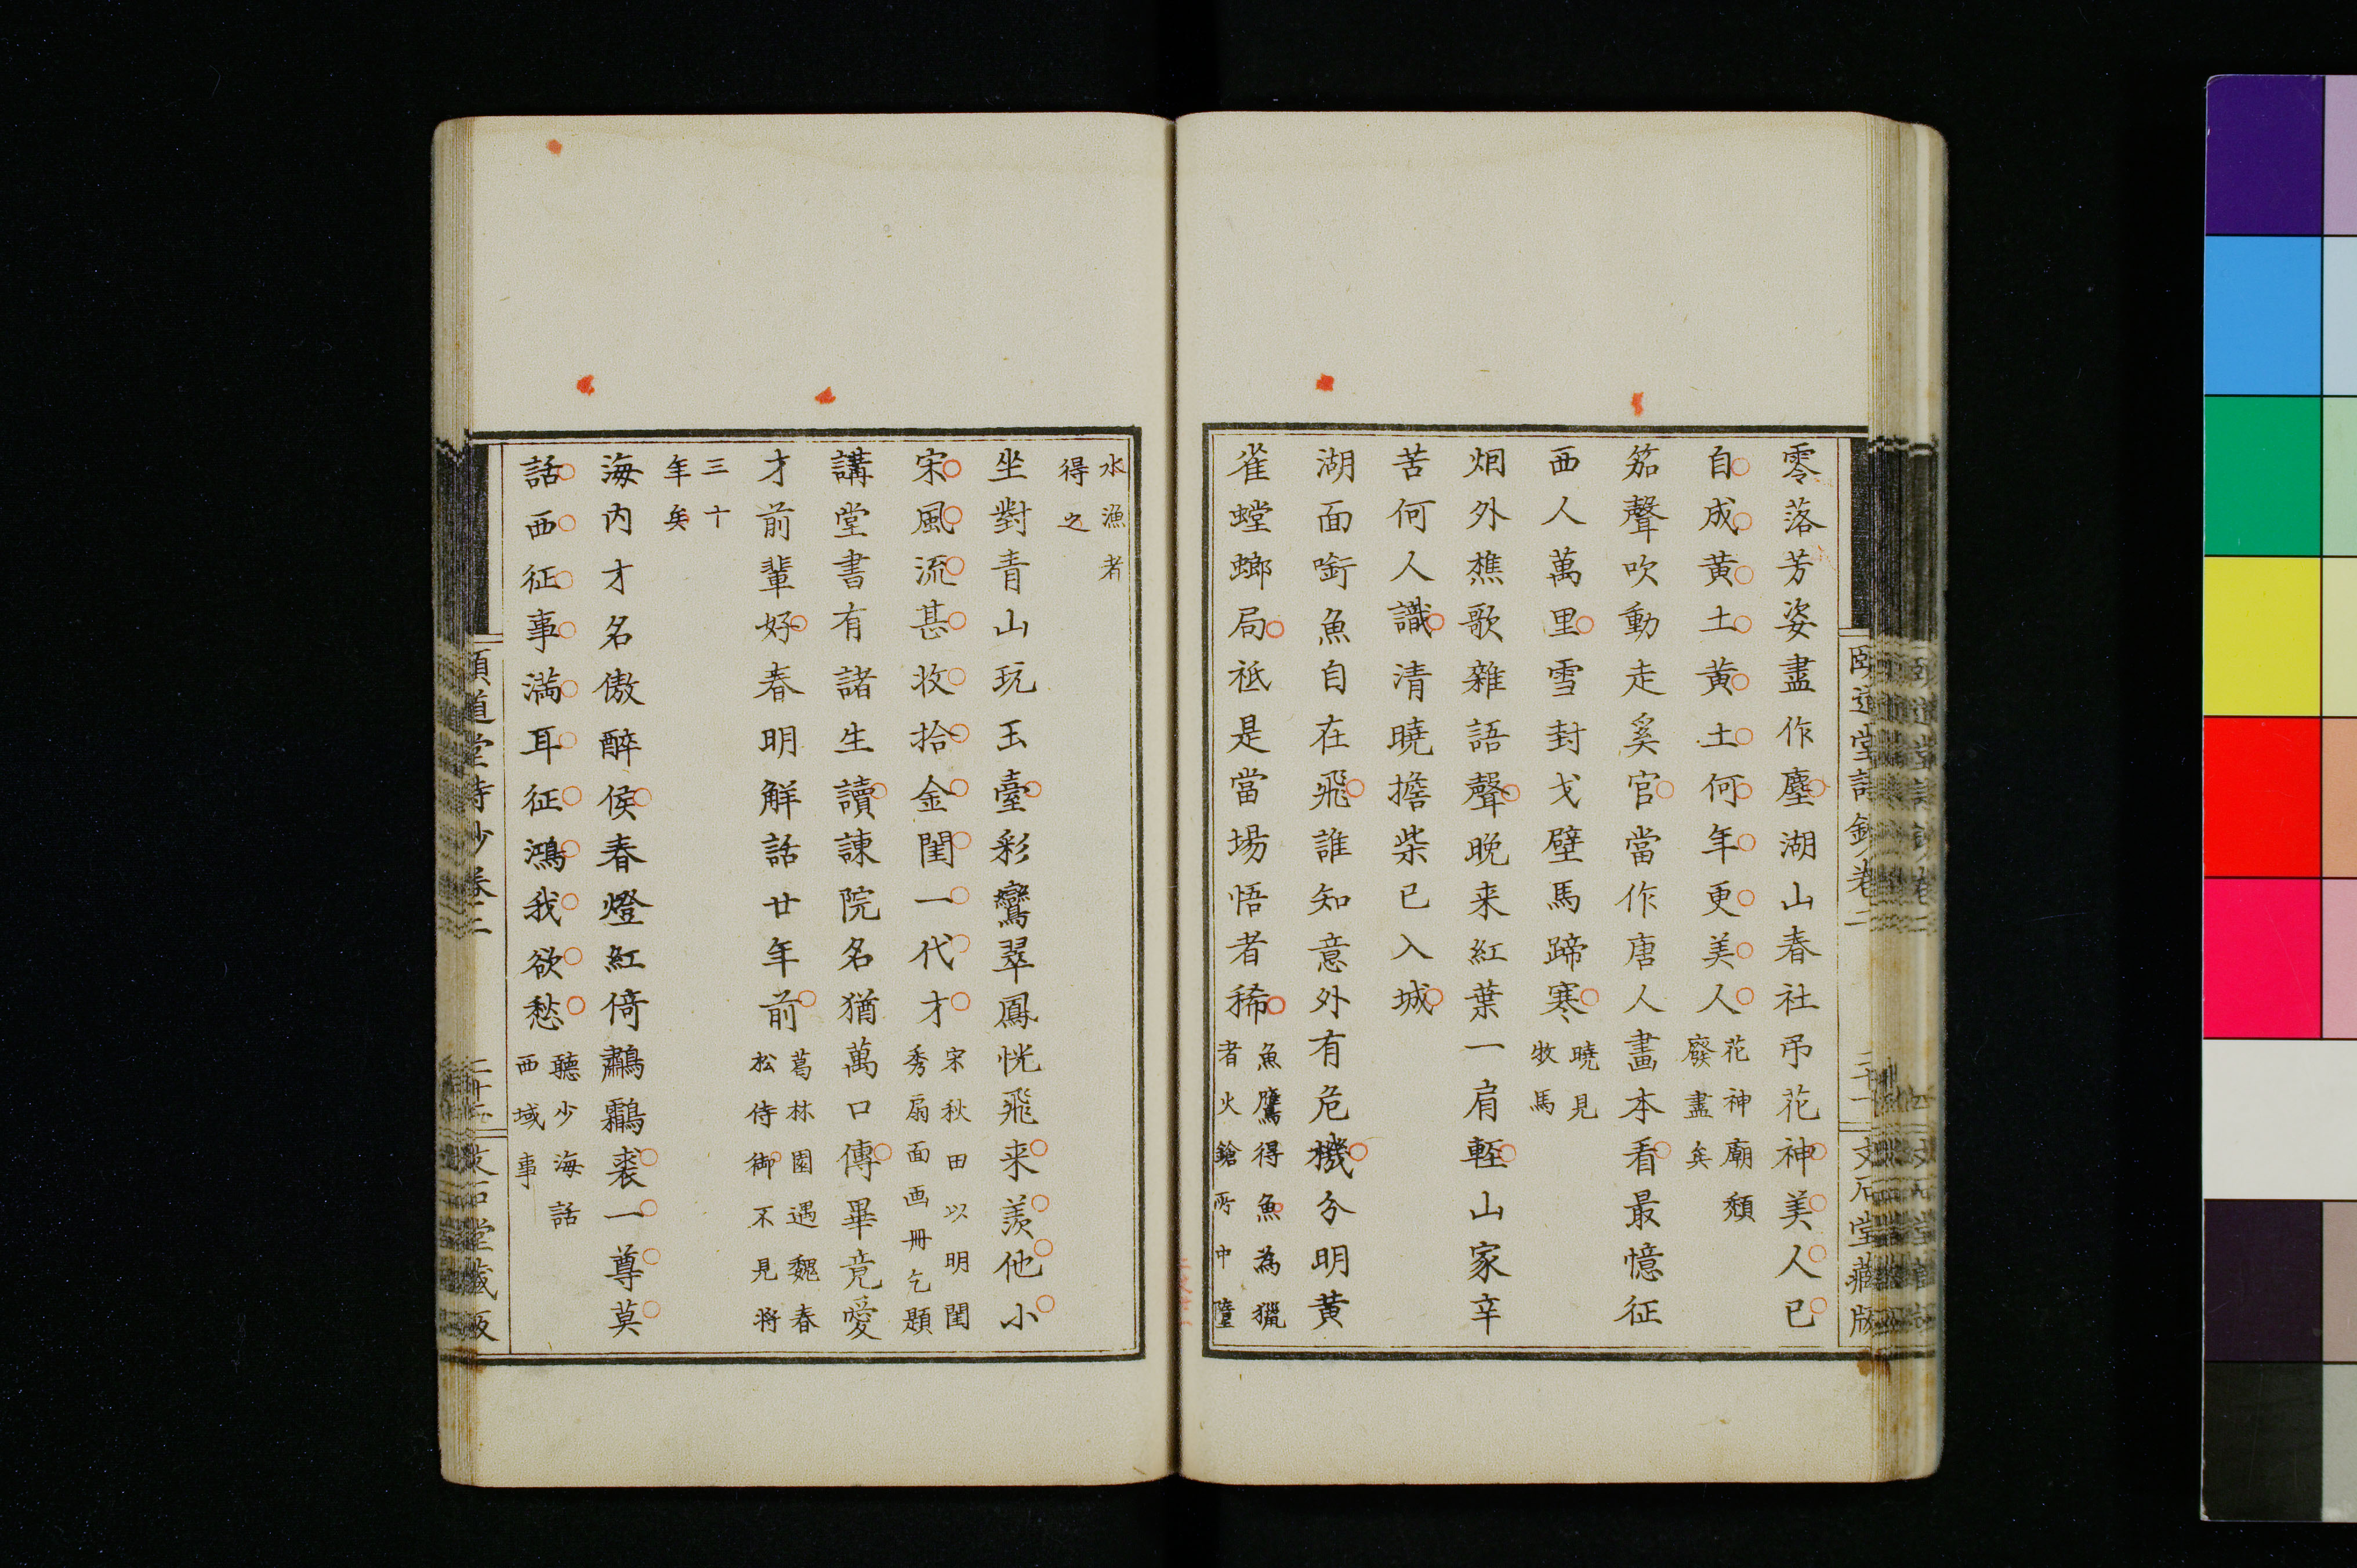 零落芳姿盡作塵湖山春社吊花神美人已
自成黃土黃土何年更美人花神廟頹
廢盡矣
笳聲吹動走奚官當作唐人畫本看最憶征
西人萬里雪封戈壁馬蹄寒曉見
牧馬
烟外樵歌雜語聲晚来紅葉一肩輕山家辛
苦何人識清曉擔柴已入城
湖面啣魚自在飛誰知意外有危機分明黃
雀螳螂局祗是當場悟者稀魚鷹得魚為獵
者火鎗所中墮
水漁者
得之
坐對青山玩玉臺彩鸞翠鳳恍飛来羨他小
宋風流甚收拾金閨一代才宋秋田以明閨
秀扇面画冊乞題
講堂書有諸生讀諫院名猶萬口傳畢竟愛
才前輩好春明解話廿年前葛林園遇魏春
松侍御不見將
三十
年矣
海內才名傲醉侯春燈紅倚鷫鸘裘一尊莫
話西征事滿耳征鴻我欲愁聽少海話
西域事
頤道堂詩鈔卷二
文石堂藏版